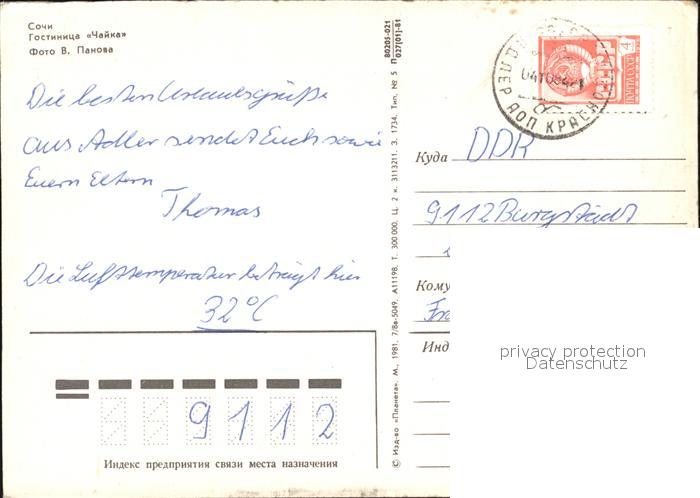 Сочи
Гостиница «Чайка»
Фото В. Панова
Die besten Urlaubsgrüße
aus Adler sendet Euch sowie
Euern Eltern
Thomas
Die Lufttemperatur beträgt hier
32°C
9112
Индекс предприятия связи места назначения
80205-021
027(01)-81
© Изд-во «Планета». М., 1981. 7/8в-5049. А11198. Т. 300 000. Ц. 2 к. 3113211. З. 1734. Тип. № 5 П
АДЛЕР КРАСНОД
4
ПОЧТА СССР
Куда DDR
9112 Burgstädt
Кому
Инд
privacy protection
Datenschutz